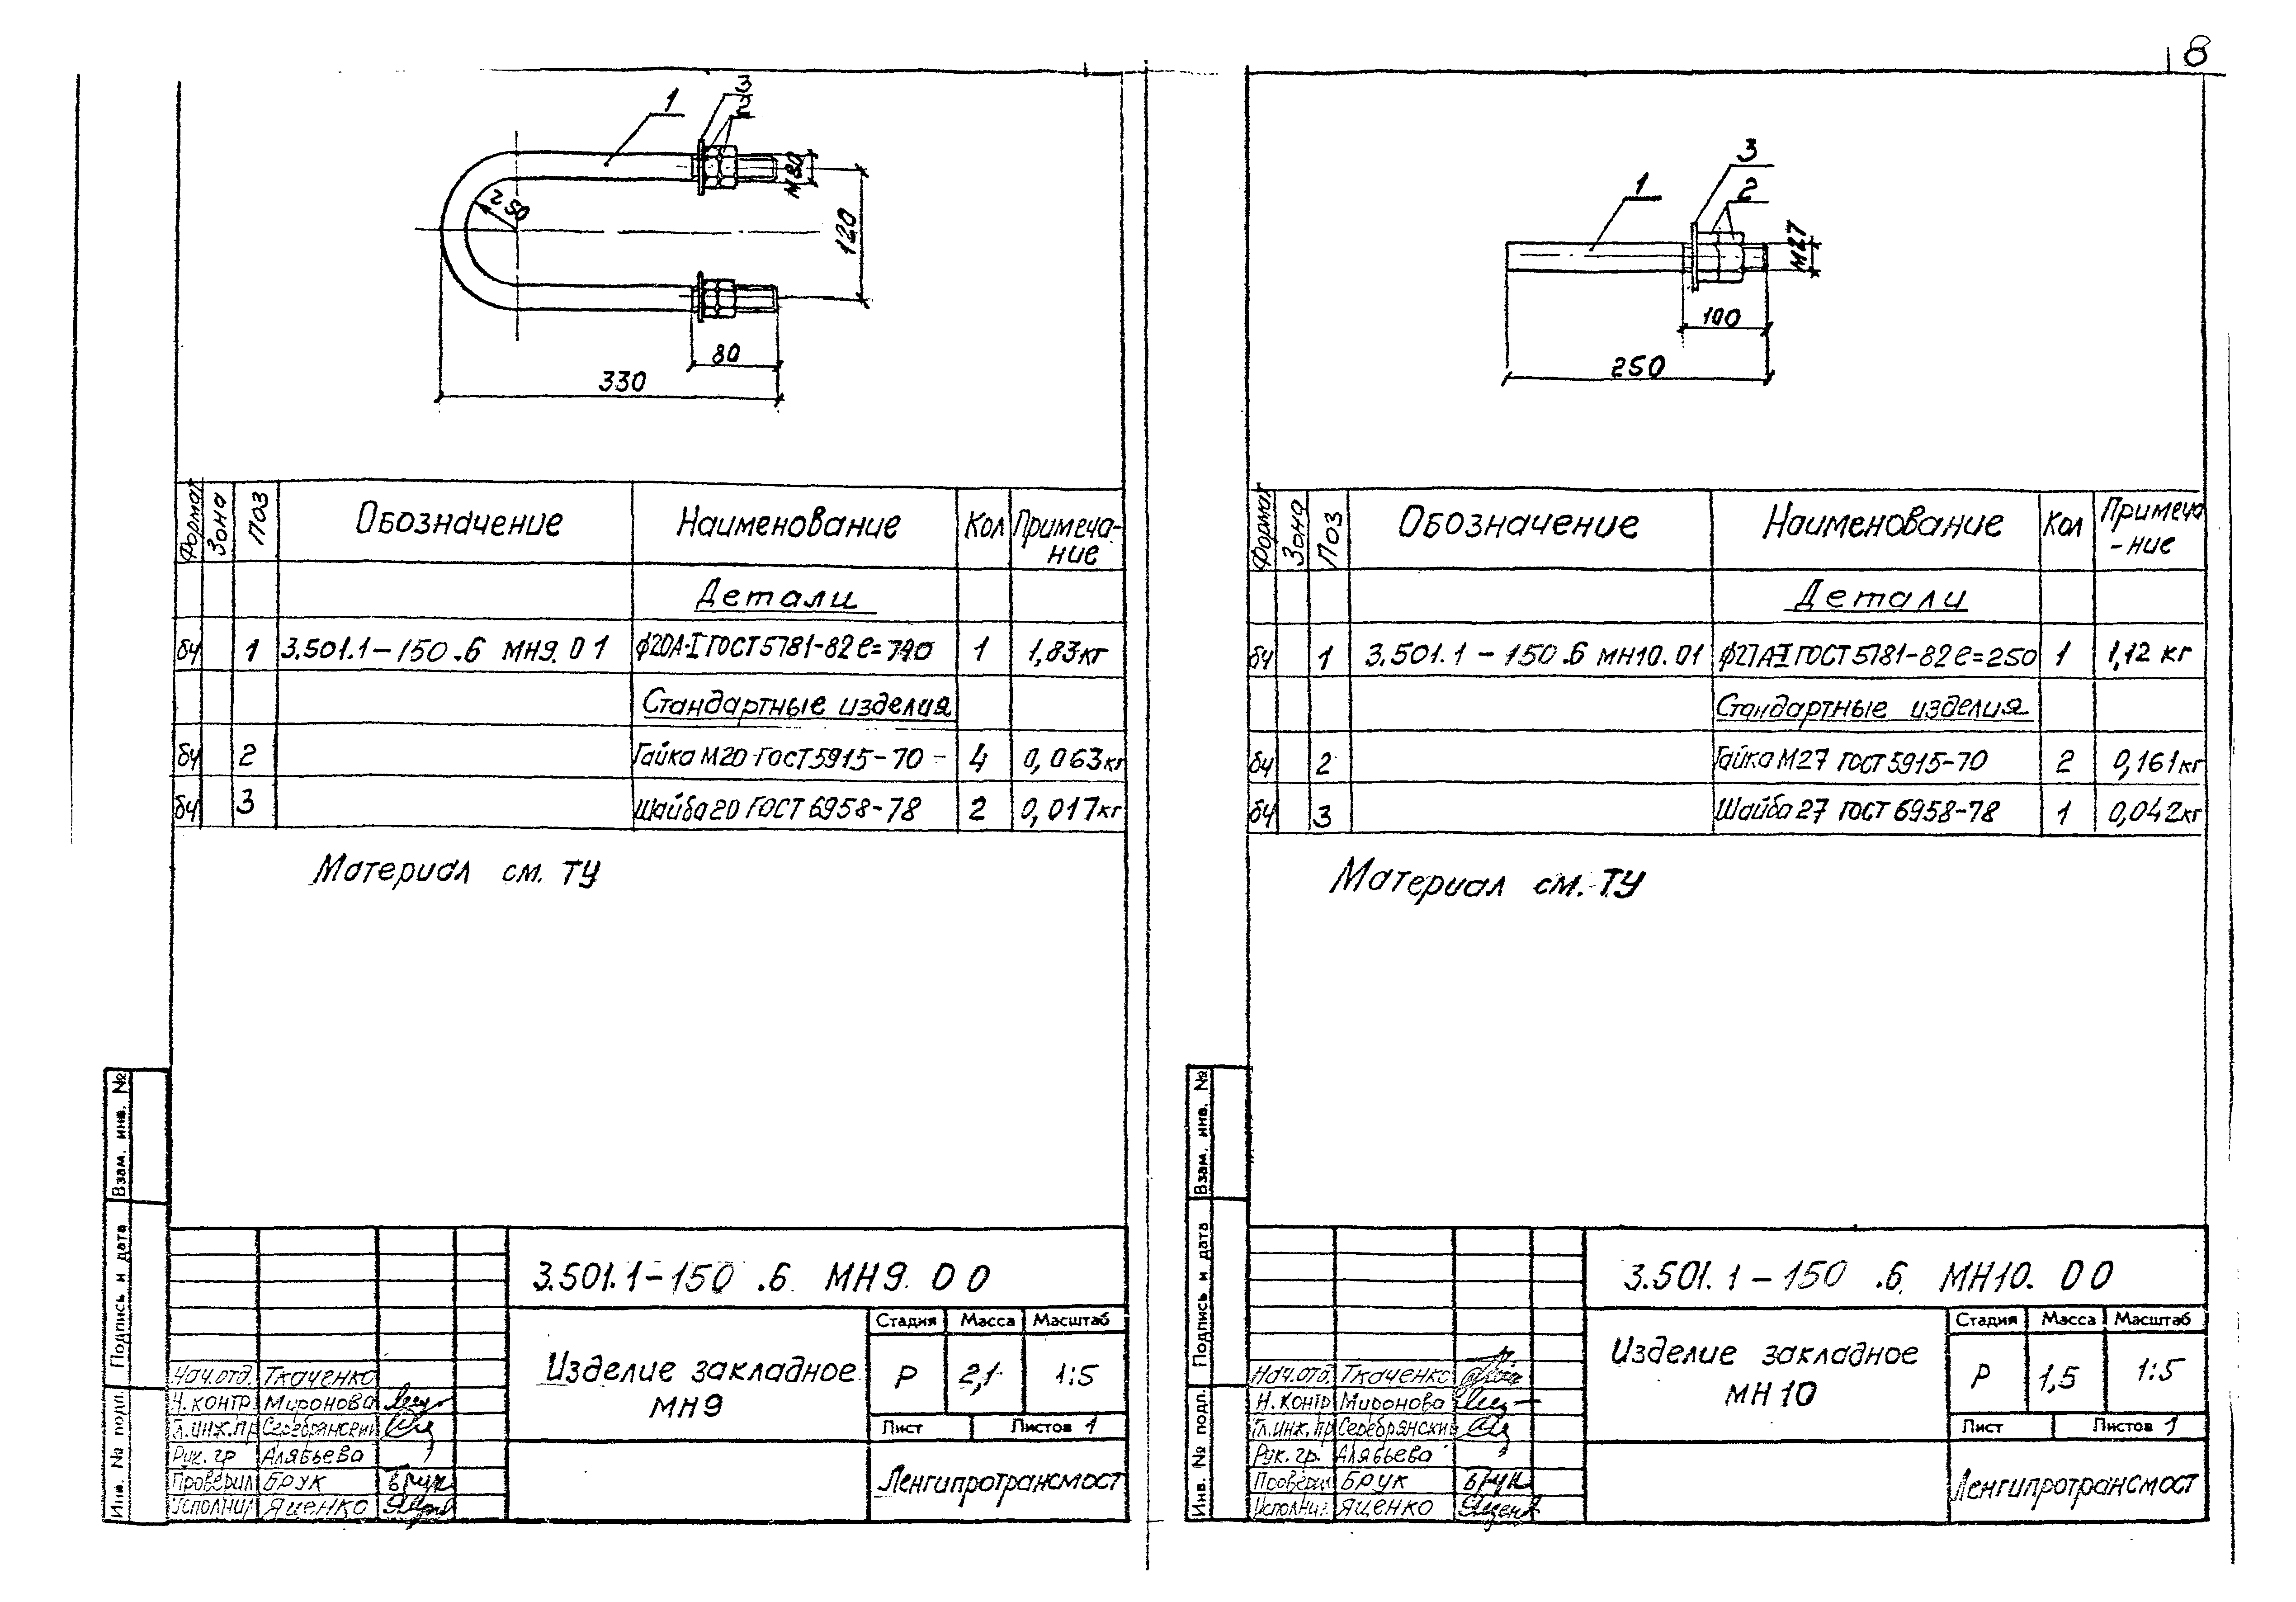 8
1
3
2
М80
120
2 50
80
330
Формат Зона Поз Обозначение Наименование Кол Примеча-
ние
Детали
бч 1 3.501.1-150.6 МН9.01 ф20А-I ГОСТ 5781-82 ℓ=740 1 1,83кг
Стандартные изделия
бч 2 Гайка М20 ГОСТ 5915-70 - 4 0,063кг
бч 3 Шайба 20 ГОСТ 6958-78 2 0,017кг
Материал см. ТУ
Взам. инв. №
Подпись и дата
Инв. № подл.
3.501.1-150 .6 МН9.00
Изделие закладное
МН9
Стадия Масса Масштаб
Р 2,1 1:5
Лист Листов 1
Ленгипротрансмост
Нач.отд. Ткаченко
Н.контр Миронова
Гл.инж.пр Серебрянский
Рук.гр Алябьева
Проверил Брук Брук
Исполнил Яценко
1
3
2
М27
100
250
Формат Зона Поз Обозначение Наименование Кол Примеча
-ние
Детали
бч 1 3.501.1-150.6 МН10.01 ф27А-I ГОСТ 5781-82 ℓ=250 1 1,12 кг
Стандартные изделия
бч 2 Гайка М27 ГОСТ 5915-70 2 0,161кг
бч 3 Шайба 27 ГОСТ 6958-78 1 0,042кг
Материал см. ТУ
Взам. инв. №
Подпись и дата
Инв. № подл.
3.501.1-150 .6 МН10.00
Изделие закладное
МН10
Стадия Масса Масштаб
Р 1,5 1:5
Лист Листов 1
Ленгипротрансмост
Нач.отд. Ткаченко
Н.контр Миронова
Гл.инж.пр Серебрянский
Рук.гр. Алябьева
Проверил Брук Брук
Исполнил Яценко